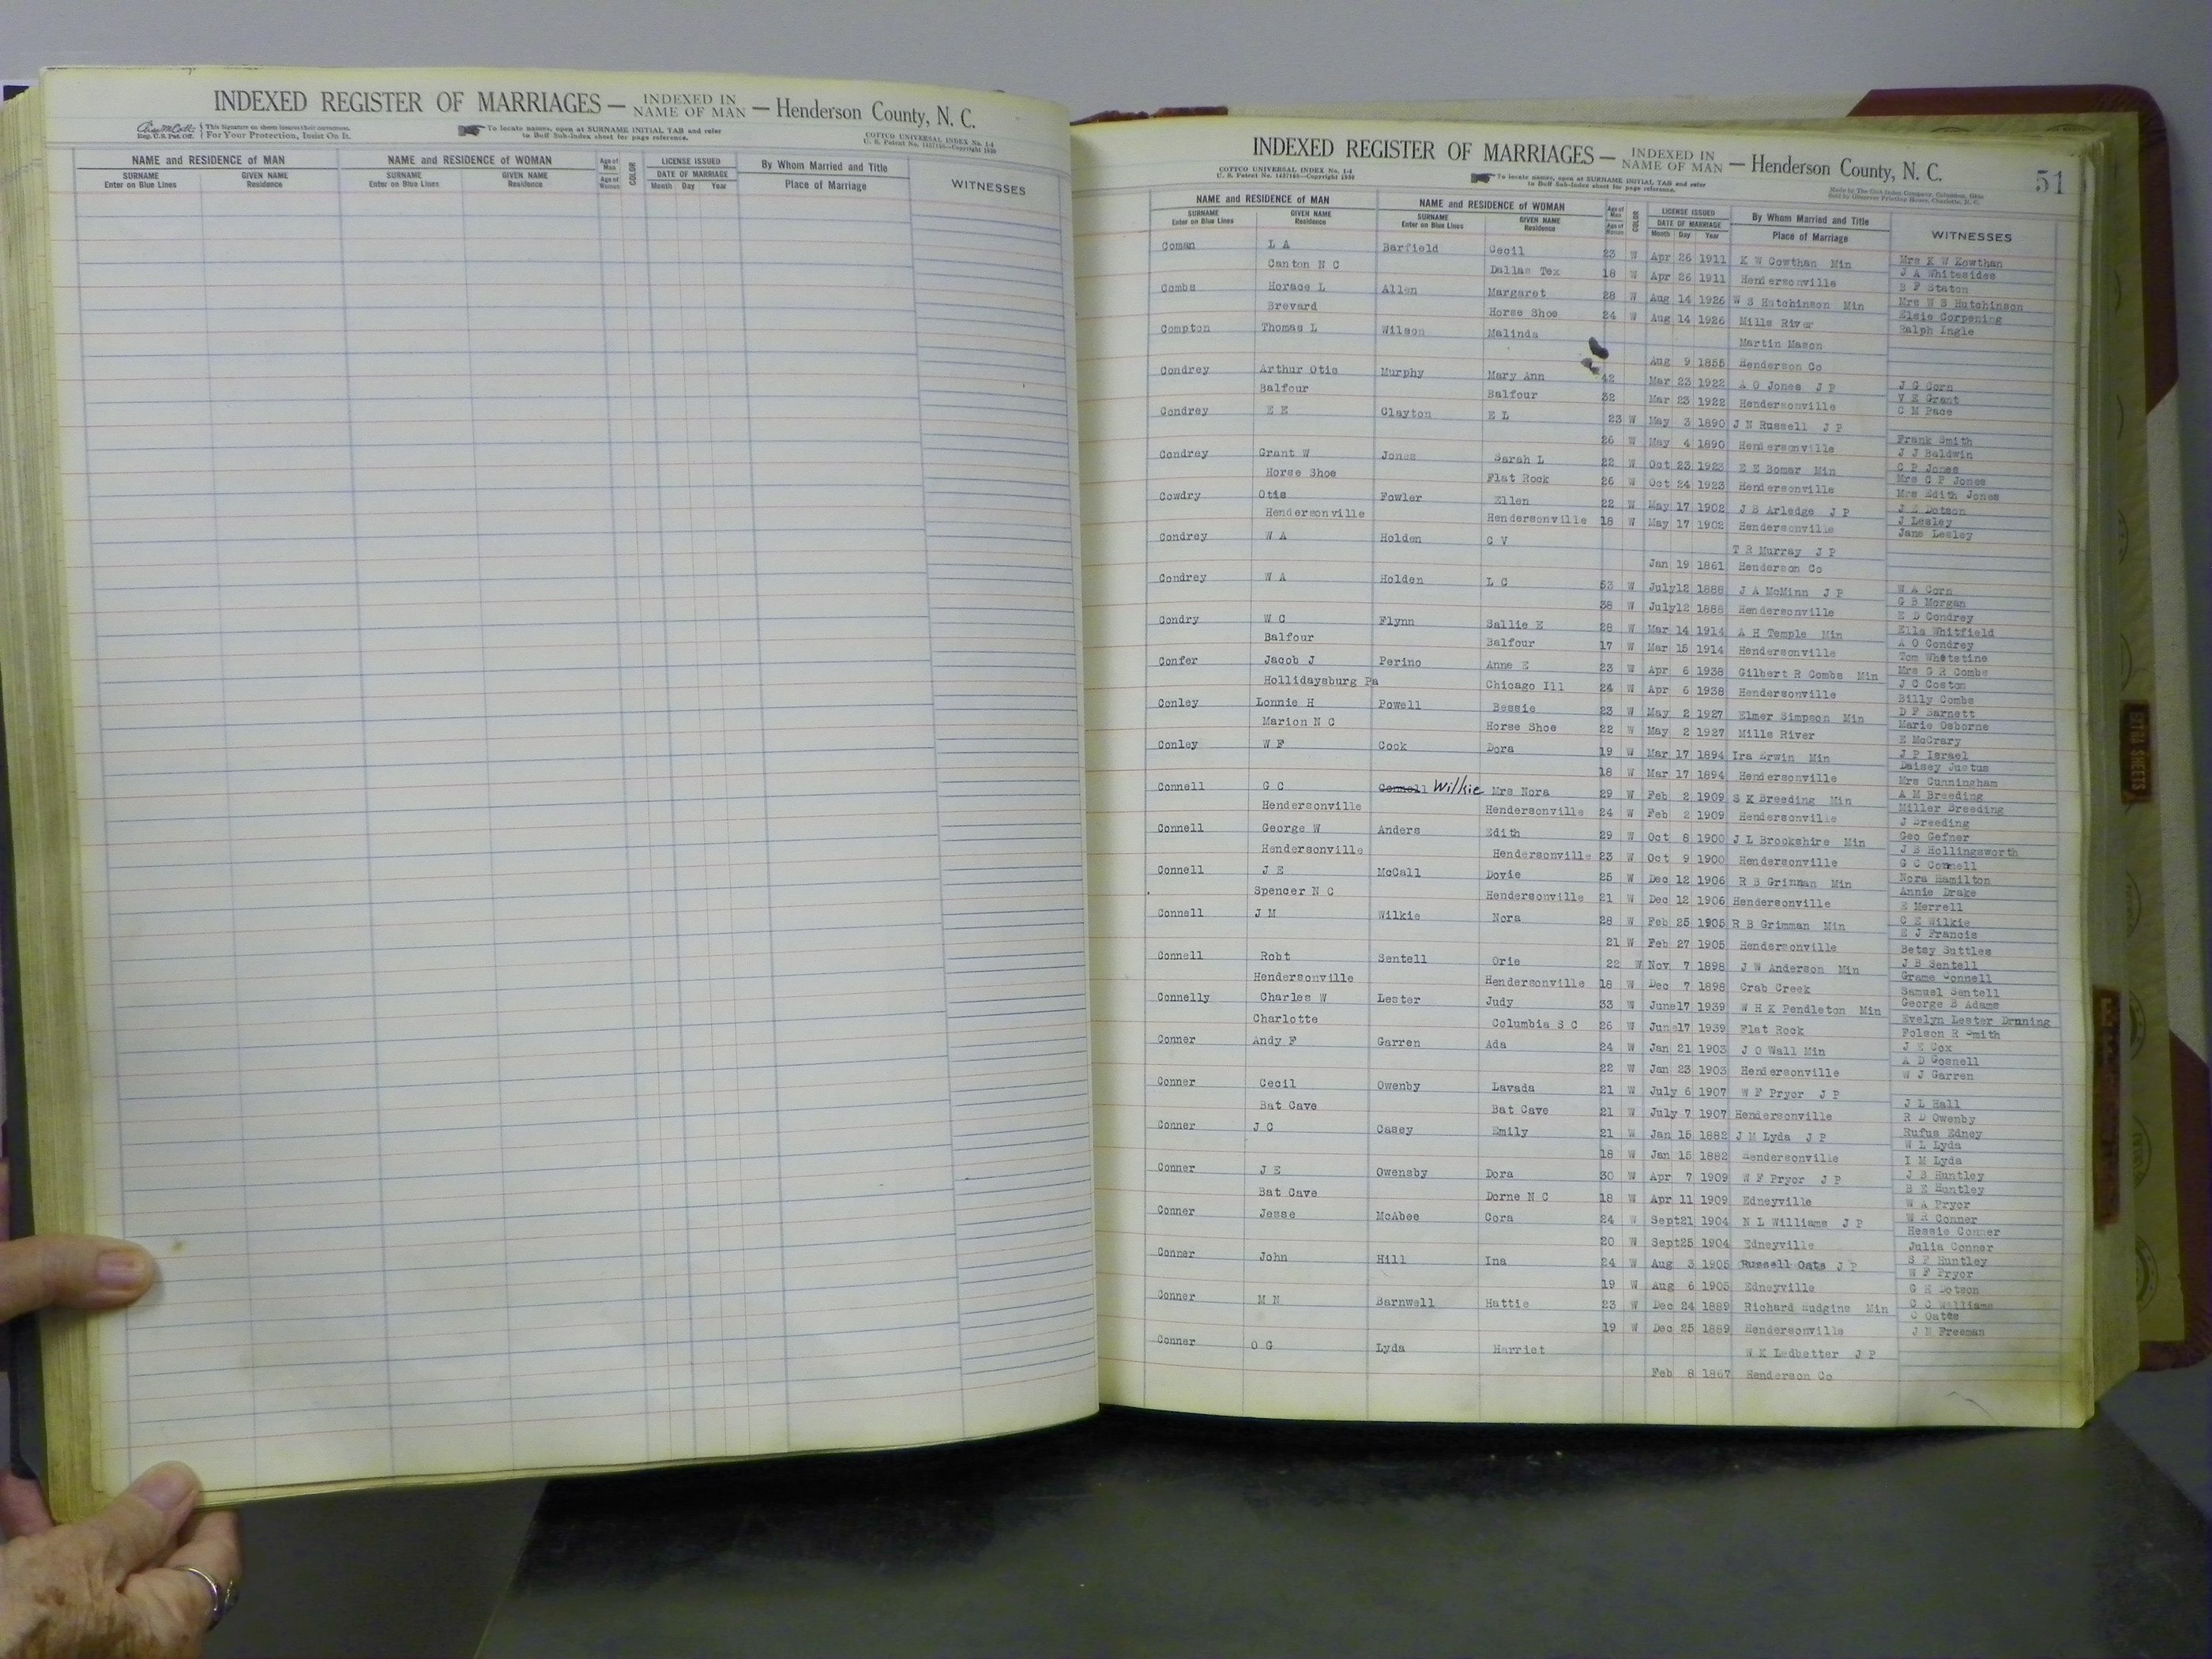 INDEXED REGISTER OF MARRIAGES — INDEXED IN NAME OF MAN — Henderson County, N. C.
Reg. U.S. Pat. Off. This Signature on sheets insures their correctness. For Your Protection, Insist On It.
To locate names, open at SURNAME INITIAL TAB and refer to Buff Sub-Index sheet for page reference.
COTTCO UNIVERSAL INDEX No. 1-4
U. S. Patent No. 1457165—Copyright 1930
NAME and RESIDENCE of MAN NAME and RESIDENCE of WOMAN Age of Man Age of Woman COLOR LICENSE ISSUED DATE OF MARRIAGE By Whom Married and Title WITNESSES
SURNAME Enter on Blue Lines GIVEN NAME Residence SURNAME Enter on Blue Lines GIVEN NAME Residence Month Day Year Place of Marriage
INDEXED REGISTER OF MARRIAGES — INDEXED IN NAME OF MAN — Henderson County, N. C. 51
COTTCO UNIVERSAL INDEX No. 1-4
U. S. Patent No. 1457165—Copyright 1930
To locate names, open at SURNAME INITIAL TAB and refer to Buff Sub-Index sheet for page reference.
Made by The Cott Index Company, Columbus, Ohio
Sold by Observer Printing House, Charlotte, N. C.
NAME and RESIDENCE of MAN NAME and RESIDENCE of WOMAN Age of Man Age of Woman COLOR LICENSE ISSUED DATE OF MARRIAGE By Whom Married and Title WITNESSES
SURNAME Enter on Blue Lines GIVEN NAME Residence SURNAME Enter on Blue Lines GIVEN NAME Residence Month Day Year Place of Marriage
Coman L A Barfield Cecil 23 W Apr 26 1911 K W Cowthan Min Mrs K W Kowthan
Canton N C Dallas Tex 18 W Apr 26 1911 Hendersonville J A Whitesides
B F Staton
Combs Horace L Allen Margaret 28 W Aug 14 1926 W S Hutchinson Min Mrs W S Hutchinson
Brevard Horse Shoe 24 W Aug 14 1926 Mills River Elsie Corpening
Ralph Ingle
Compton Thomas L Wilson Malinda Martin Mason
Aug 9 1855 Henderson Co
Condrey Arthur Otis Murphy Mary Ann 42 Mar 23 1922 A O Jones J P J G Corn
Balfour Balfour 32 Mar 23 1922 Hendersonville V E Grant
C M Pace
Condrey E E Clayton E L 23 W May 3 1890 J N Russell J P
26 W May 4 1890 Hendersonville Frank Smith
J J Baldwin
Condrey Grant W Jones Sarah L 22 W Oct 23 1923 E E Bomar Min C P Jones
Horse Shoe Flat Rock 26 W Oct 24 1923 Hendersonville Mrs C P Jones
Mrs Edith Jones
Cowdry Otis Fowler Ellen 22 W May 17 1902 J B Arledge J P J E Dotson
Hendersonville Hendersonville 18 W May 17 1902 Hendersonville J Lesley
Jane Lesley
Condrey W A Holden C V T R Murray J P
Jan 19 1861 Henderson Co
Condrey W A Holden L C 53 W July12 1888 J A McMinn J P W A Corn
38 W July12 1888 Hendersonville G B Morgan
E D Condrey
Condry W C Flynn Sallie E 28 W Mar 14 1914 A H Temple Min Ella Whitfield
Balfour Balfour 17 W Mar 15 1914 Hendersonville A O Condrey
Tom Whetstine
Confer Jacob J Perino Anne E 23 W Apr 6 1938 Gilbert R Combs Min Mrs G R Combs
Hollidaysburg Pa Chicago Ill 24 W Apr 6 1938 Hendersonville J C Coston
Billy Combs
Conley Lonnie H Powell Bessie 23 W May 2 1927 Elmer Simpson Min D F Barnett
Marion N C Horse Shoe 22 W May 2 1927 Mills River Marie Osborne
E McCrary
Conley W F Cook Dora 19 W Mar 17 1894 Ira Erwin Min J P Israel
18 W Mar 17 1894 Hendersonville Daisey Justus
Mrs Cunningham
Connell G C Connell Wilkie Mrs Nora 29 W Feb 2 1909 S K Breeding Min A M Breeding
Hendersonville Hendersonville 24 W Feb 2 1909 Hendersonville Miller Breeding
J Breeding
Connell George W Anders Edith 29 W Oct 8 1900 J L Brookshire Min Geo Gefner
Hendersonville Hendersonville 23 W Oct 9 1900 Hendersonville J B Hollingsworth
G C Connell
Connell J E McCall Dovie 25 W Dec 12 1906 R B Grinnan Min Nora Hamilton
Spencer N C Hendersonville 21 W Dec 12 1906 Hendersonville Annie Drake
E Merrell
Connell J M Wilkie Nora 28 W Feb 25 1905 R B Grimman Min C E Wilkie
21 W Feb 27 1905 Hendersonville E J Francis
Betsy Suttles
Connell Robt Sentell Orie 22 W Nov 7 1898 J W Anderson Min J B Sentell
Hendersonville Hendersonville 18 W Dec 7 1898 Crab Creek Grame Connell
Samuel Sentell
Connelly Charles W Lester Judy 33 W June17 1939 W H K Pendleton Min George B Adams
Charlotte Columbia S C 26 W June17 1939 Flat Rock Evelyn Lester
Folson R Smith
Conner Andy F Garren Ada 24 W Jan 21 1903 J O Wall Min J E Cox
22 W Jan 23 1903 Hendersonville A D Gosnell
W J Garren
Conner Cecil Owenby Lavada 21 W July 6 1907 W F Pryor J P
Bat Cave Bat Cave 21 W July 7 1907 Hendersonville J L Hall
R D Owenby
Conner J C Casey Emily 21 W Jan 15 1882 J M Lyda J P Rufus Edney
18 W Jan 15 1882 Hendersonville W L Lyda
I M Lyda
Conner J E Owensby Dora 30 W Apr 7 1909 W F Pryor J P J B Huntley
Bat Cave Dorne N C 18 W Apr 11 1909 Edneyville B E Huntley
W A Pryor
Conner Jesse McAbee Cora 24 W Sept21 1904 N L Williams J P W R Conner
Hessie Conner
20 W Sept25 1904 Edneyville Julia Conner
Conner John Hill Ina 24 W Aug 3 1905 Russell Oats J P S F Huntley
W F Pryor
19 W Aug 6 1905 Edneyville G H Dotson
Conner M N Barnwell Hattie 23 W Dec 24 1889 Richard Hudgins Min C C Williams
C Oates
19 W Dec 25 1889 Hendersonville J N Freeman
Conner O G Lyda Harriet W K Ledbetter J P
Feb 8 1867 Henderson Co
EXTRA SHEETS